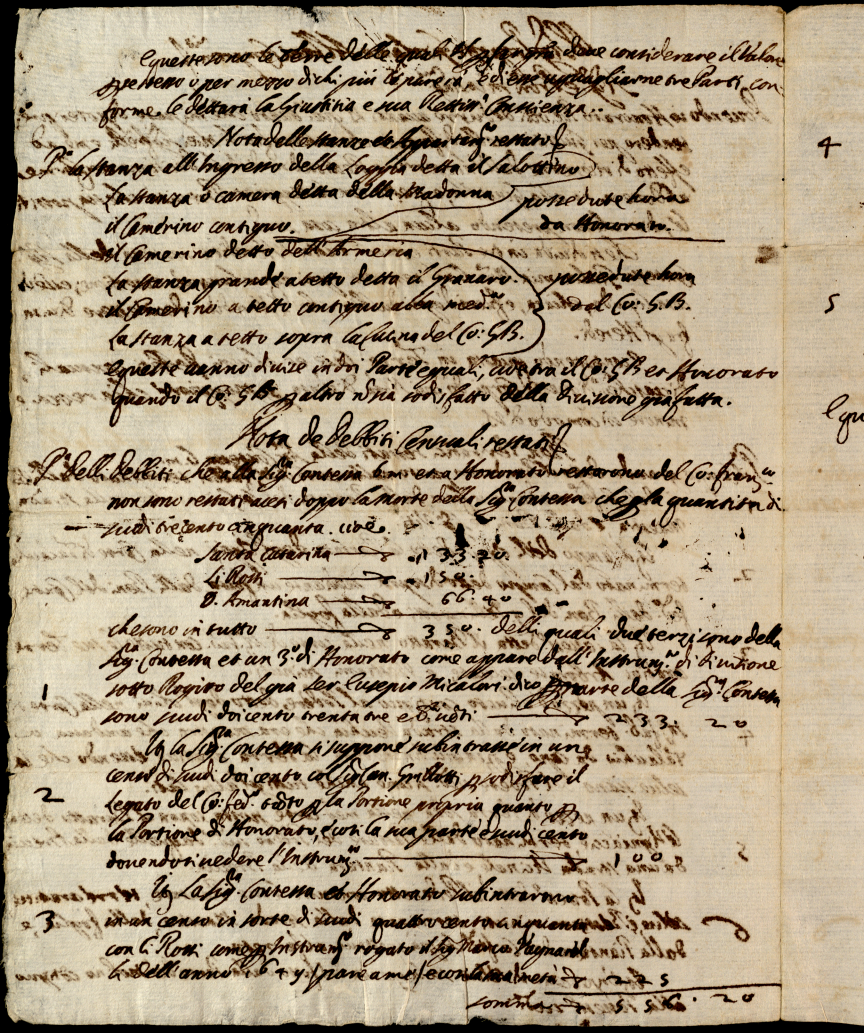 e queste sono le opere delle quali deve considerare il Valore
o per mezzo di chi più li parerà, e di esse uguagliarne tre Parti, con-
forme le dettarà la Giustitia e sua Rettiss. Conscienza..
Nota delle stanze restate
P.a la stanza all'Ingresso della Loggia detta il Salottino
La stanza o camera detta della Madonna possedute hora
il Camerino contiguo. da Honorato.
il Camerino detto dell'Armeria
La stanza grande a tetto detta il Granaro. possedute hora
il Camerino a tetto contiguo alla med.ma dal Co: G.B.
La stanza a tetto sopra la Cucina del Co: G.B.
e queste vanno divise in doi Parti eguali, cioè tra il Co: G.B. et Honorato
quando il Co: G.B. p altro nō sia sodisfatto della Divisione già fatta.
Nota de Debbiti Censuali restati
P.a delli Debbiti che alla Sig.ra Contessa b.m. et a Honorato restorono del Co: Fran.co
non sono restati accesi doppo la morte della Sig.ra Contessa che p la quantità di
scudi trecento cinquanta. cioè.
Santa Catarina 133.20.
Li Rossi .150.
D. Amantina 66:40
che sono in tutto 350. delli quali due terzi sono della
Sig.ra Contessa et un 3.o di Honorato come appare dall'Instrum.o di divisione
sotto Rogito del già Ser Eusepio Micalori. dico p parte della Sig.ra Contessa
sono scudi doicento trenta tre e b. vēti 233. 20
1
It. la Sig.ra Contessa si suppone subintrasse in un
censo di scudi doi cento col Sig. Can. Grillotti p sodisfare il
2
Legato del Co: Fed.o tāto p la Portione propria quanto p
la Portione di Honorato, e così la sua parte è scudi cento
dovendosi vedere l'Instrum.o 100
It. La Sig.ra Contessa et Honorato subintrarono
3
in un censo in sorte di scudi quattrocento cinquanta
con li Rossi come p Instrum.o rogato il Sig. Marco
li dell'anno 1649. /pare a me/ e con la metà 225
somma 558. 20
4
5
e qu